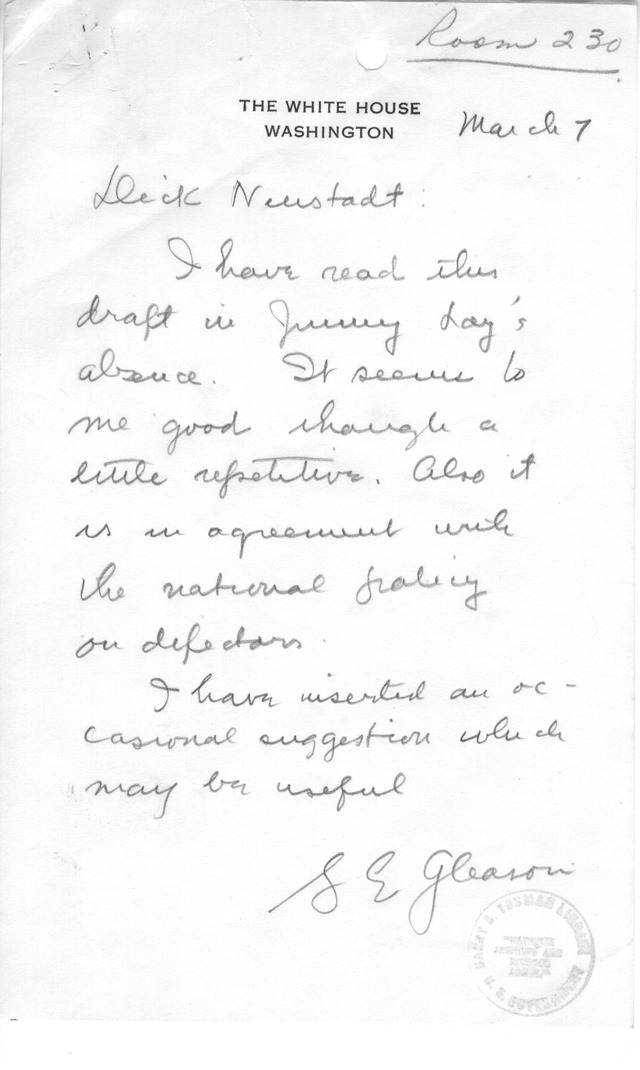 Room 230
THE WHITE HOUSE
WASHINGTON
March 7
Dick Neustadt:
I have read this
draft in Jimmy Lay's
absence. It seems to
me good though a
little repetitive. Also it
is in agreement with
the national policy
on defectors.
I have inserted an oc-
casional suggestion which
may be useful
S E Gleason
HARRY S. TRUMAN LIBRARY
"NATIONAL
ARCHIVES AND
RECORDS
U. S. GOVERNMENT